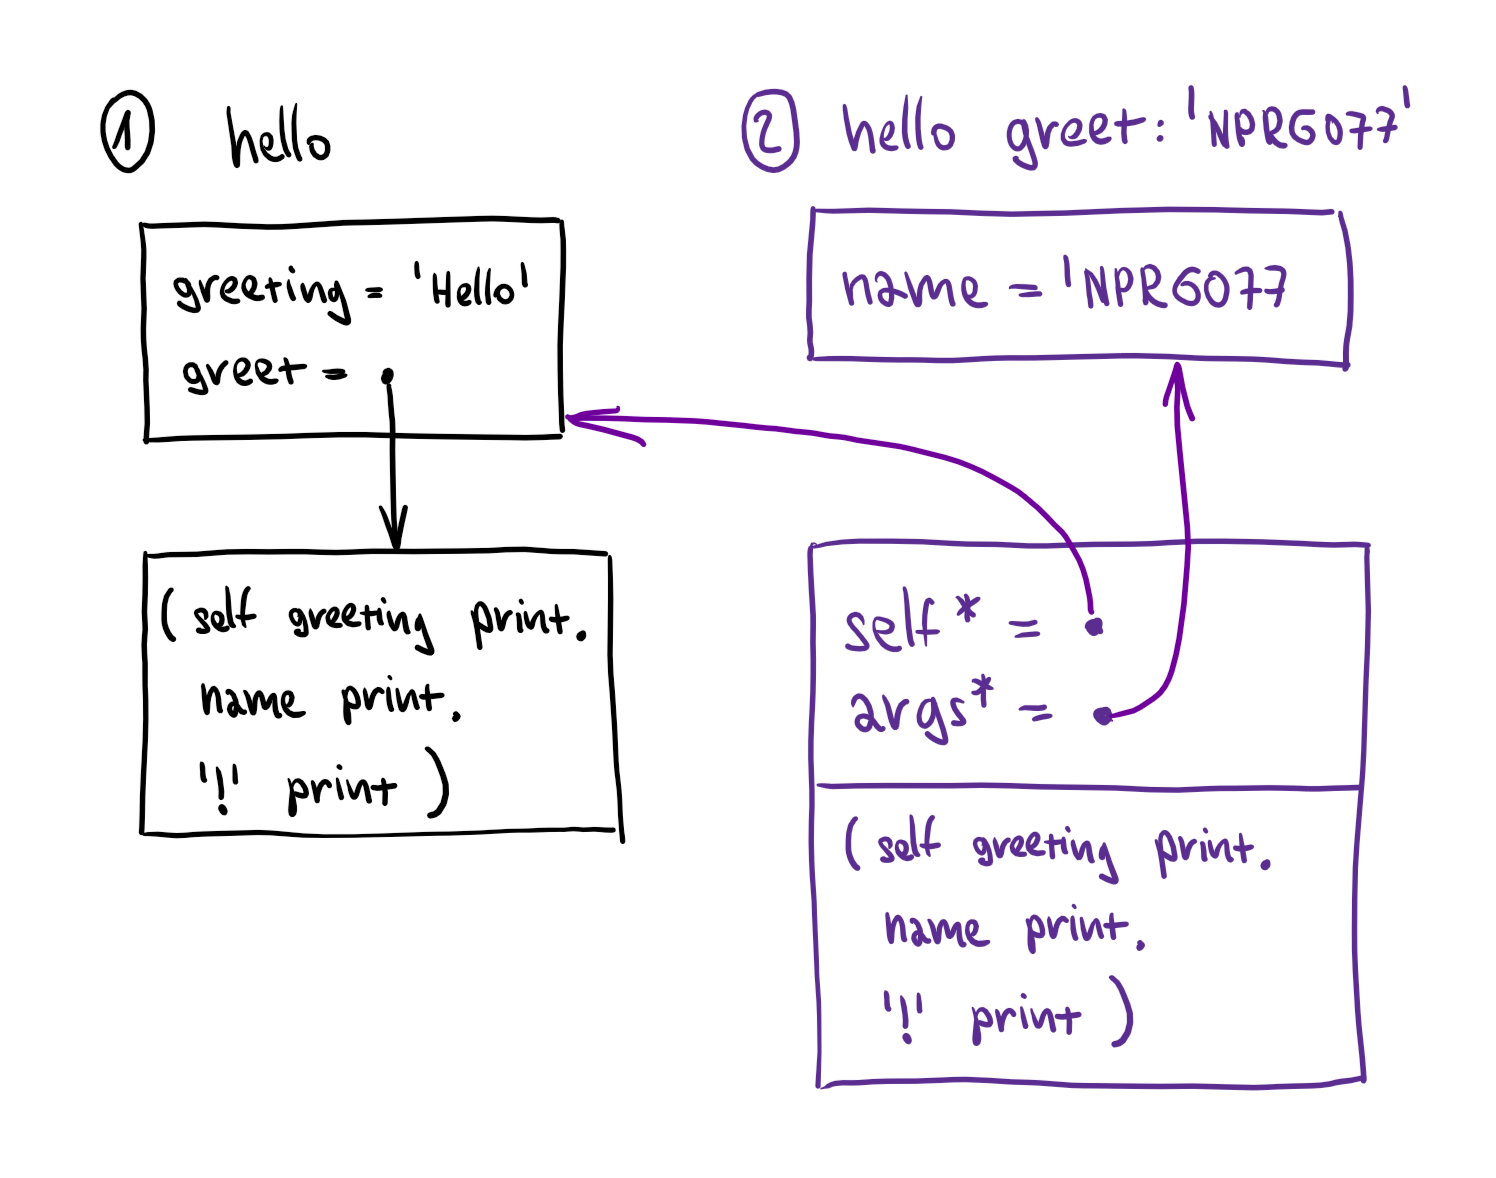 1 hello
greeting = 'Hello'
greet = 
( self greeting print.
name print.
'!' print )
2 hello greet: 'NPRG077'
name = 'NPRG077
self* = 
args* = 
( self greeting print.
name print.
'!' print )